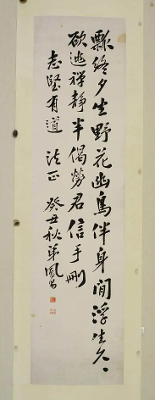 終夕生野花幽鳥伴身閒浮生久
欲逃禪靜半偈勞君信手刪
志堅有道 法正 癸丑秋